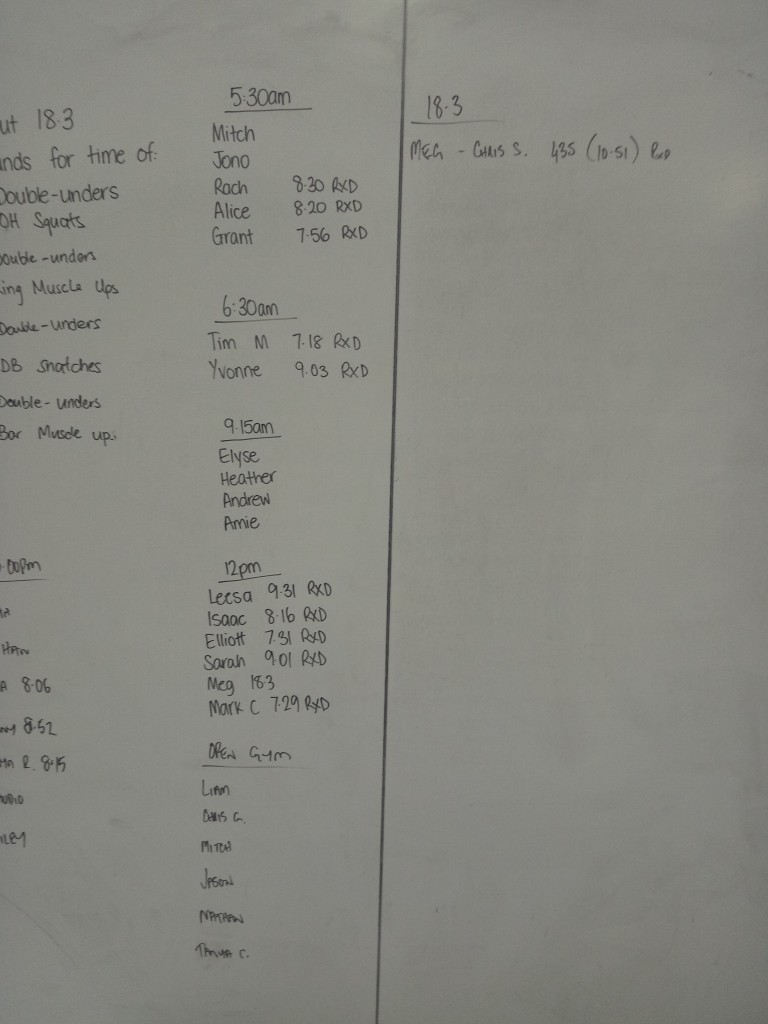 18.3
for time of:
Double-unders
OH Squats
Double-unders
Muscle Ups
Double-unders
DB snatches
Double-unders
Bar Muscle ups
HAN
A 8:06
8:52
R. 8:15
5:30am
Mitch
Jono
Rach 8:30 RXD
Alice 8:20 RXD
Grant 7:56 RXD
6:30am
Tim M 7.18 RXD
Yvonne 9.03 RXD
9.15am
Elyse
Heather
Andrew
Amie
12pm
Leesa 9.31 RXD
Isaac 8.16 RXD
Elliott 7.31 RXD
Sarah 9.01 RXD
Meg 18.3
Mark C 7.29 RXD
OPEN GYM
LIAM
CHRIS G.
MITCH
JASON
NATHAN
TANYA C.
18.3
MEG - CHRIS S. 435 (10.51) RXD